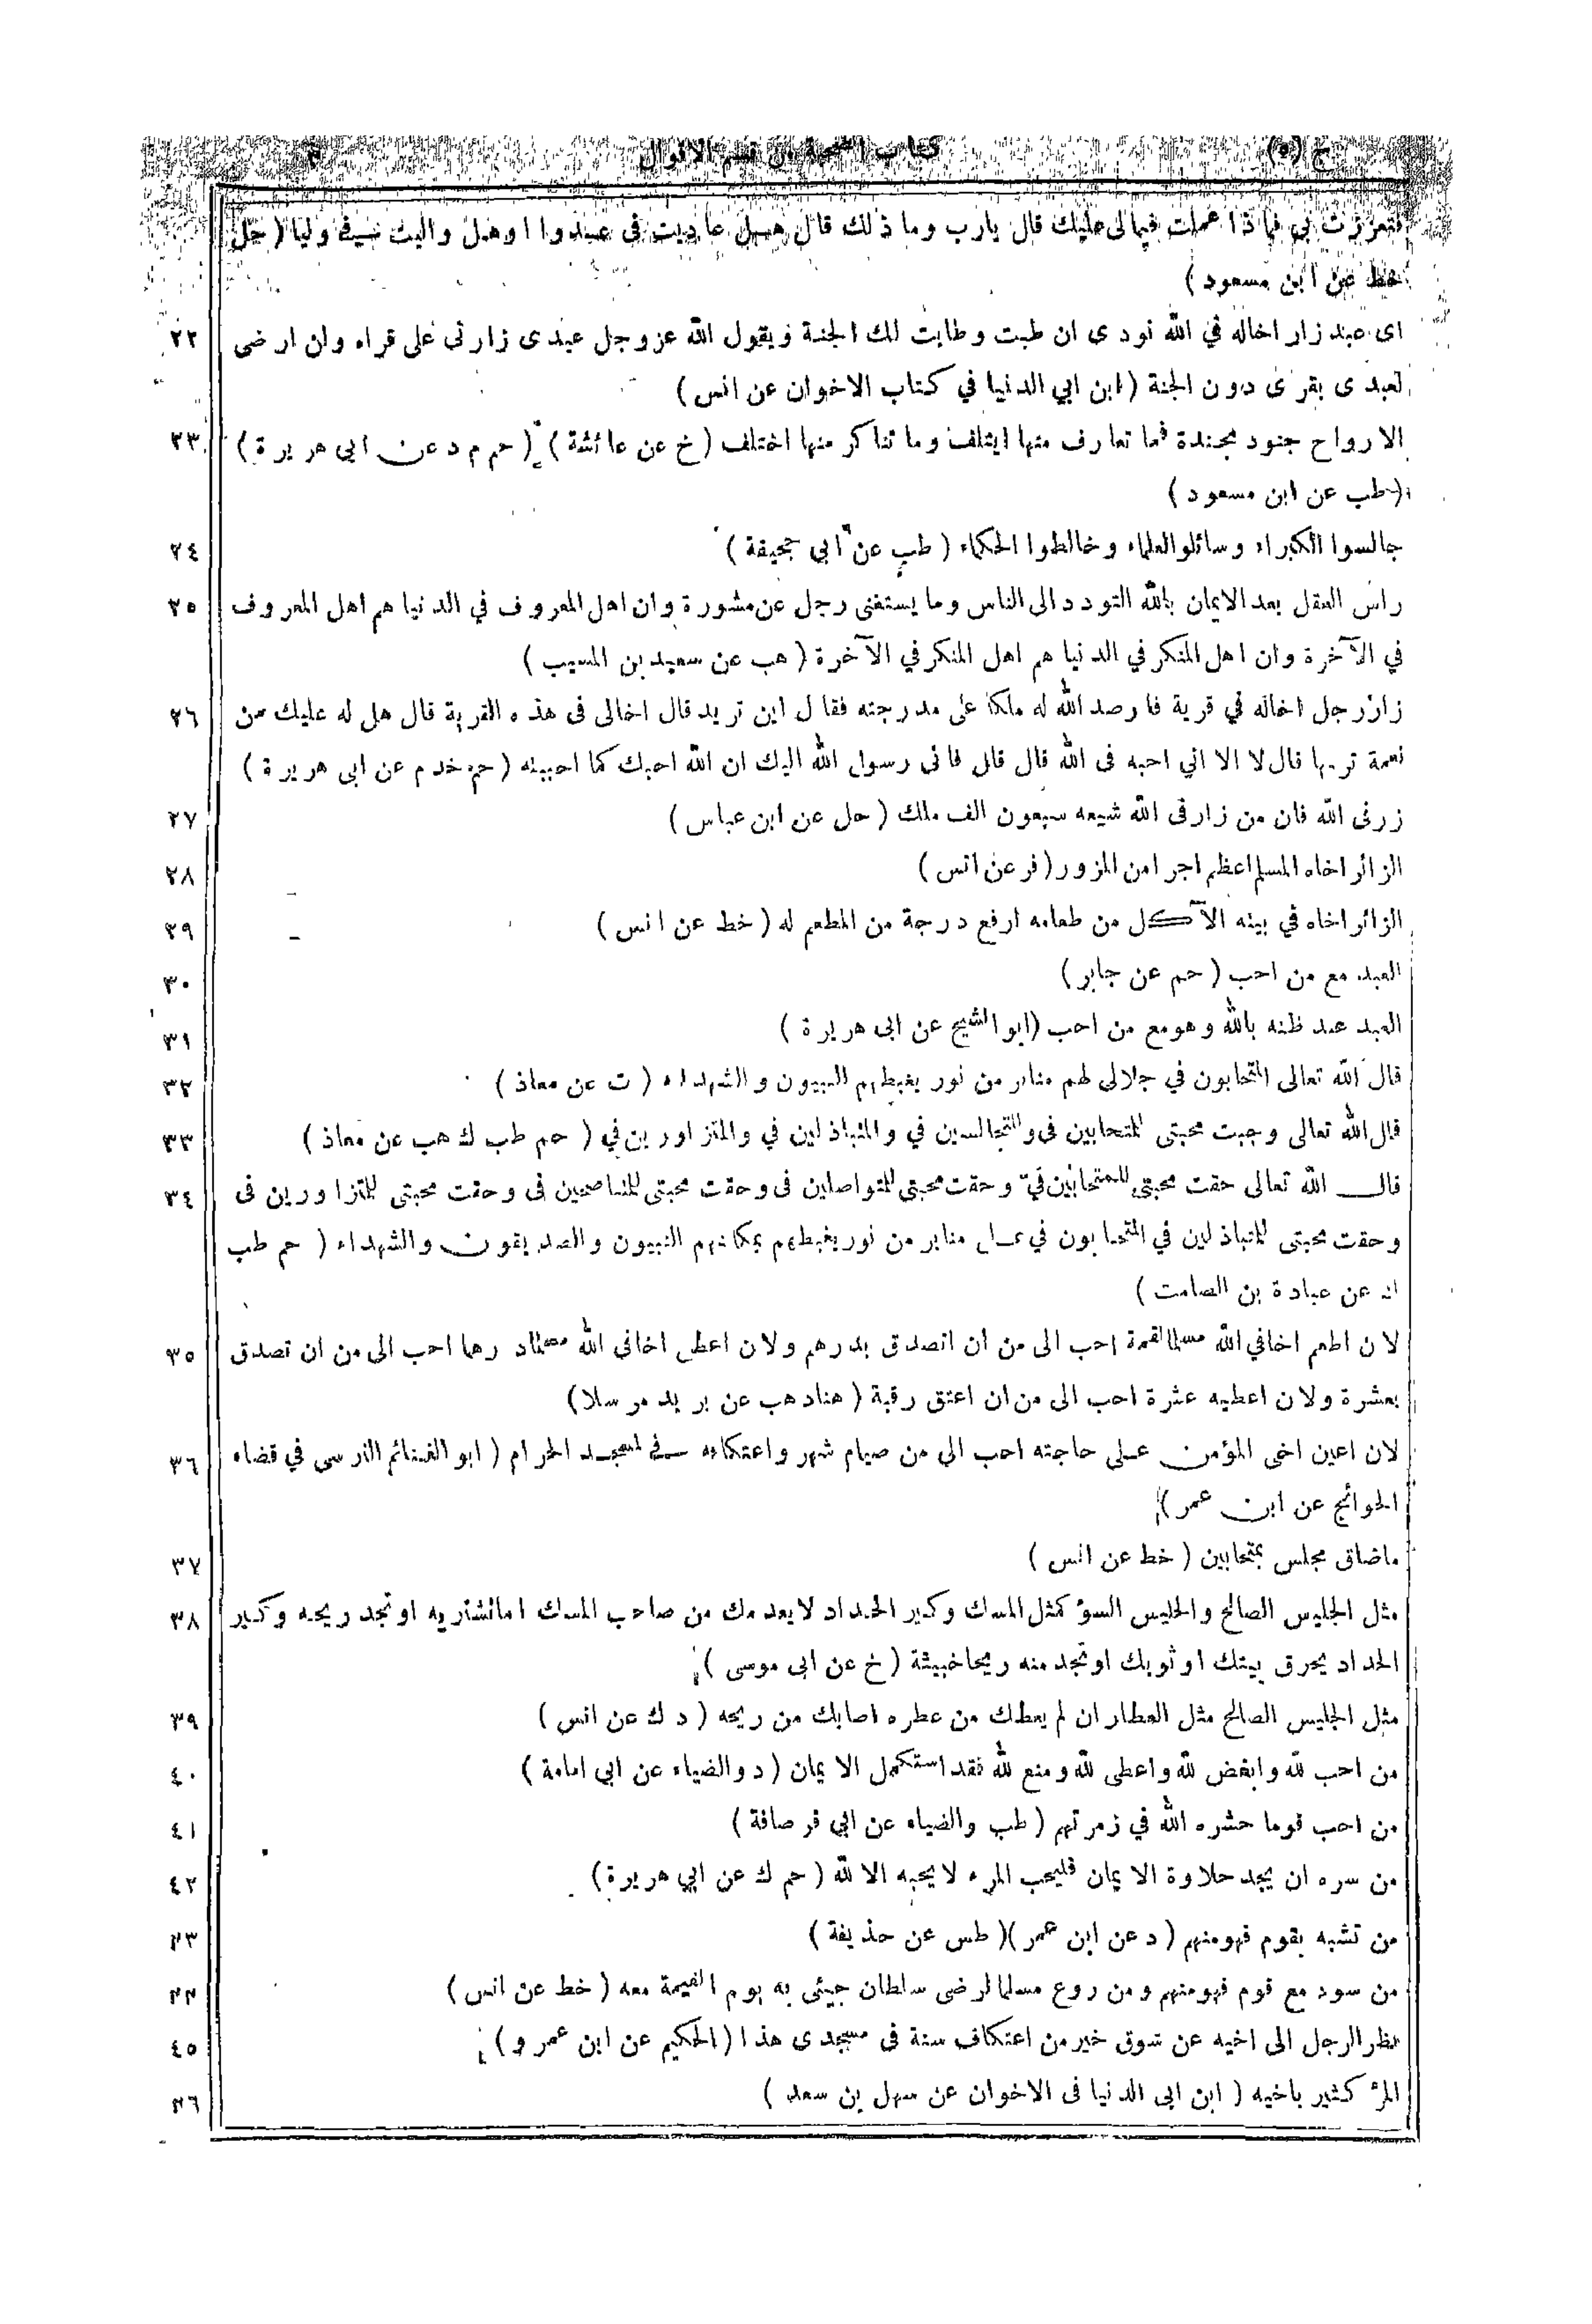 ج (٥) كتاب الصحبة من قسم الاقوال ٣
فتعززت بي فماذا عملت فيمالى عليك قال يارب وما ذلك قال هل عاديت فى عدوا اوهل واليت فى وليا (حل
خط عن ابن مسعود)
اى عبد زار اخاله في الله نودى ان طبت وطابت لك الجنة ويقول الله عزوجل عبدى زارنى على قراه ولن ارضى ٢٢
لعبدى بقرى دون الجنة (ابن ابي الدنيا في كتاب الاخوان عن انس)
الارواح جنود مجندة فما تعارف منها ايتلف وما تناكر منها اختلف (خ عن عائشة) (حم م د عن ابى هريرة) ٢٣
(طب عن ابن مسعود)
جالسوا الكبراء وسائلوالعلماء وخالطوا الحكماء (طب عن ابي جحيفة) ٢٤
راس العقل بعد الايمان بالله التودد الى الناس وما يستغنى رجل عن مشورة وان اهل المعروف في الدنيا هم اهل المعروف ٢٥
في الآخرة وان اهل المنكر في الدنيا هم اهل المنكر في الآخرة (هب عن سعيد بن المسيب)
زار رجل اخاله في قرية فارصد الله له ملكا على مدرجته فقال اين تريد قال اخالى فى هذه القرية قال هل له عليك من ٢٦
نعمة تربها قال لا الا اني احبه فى الله قال فانى رسول الله اليك ان الله احبك كما احببته (حم خد م عن ابى هريرة)
زر فى الله فان من زار فى الله شيعه سبعون الف ملك (حل عن ابن عباس) ٢٧
الزائر اخاه المسلم اعظم اجرا من المزور (فر عن انس) ٢٨
الزائر اخاه في بيته الآكل من طعامه ارفع درجة من المطعم له (خط عن انس) ٢٩
العبد مع من احب (حم عن جابر) ٣٠
العبد عند ظنه بالله وهو مع من احب (ابو الشيخ عن ابى هريرة) ٣١
قال الله تعالى المتحابون في جلالى لهم منابر من نور يغبطهم النبيون والشهداء (ت عن معاذ) ٣٢
قال الله تعالى وجبت محبتى للمتحابين فى والمتجالسين في والمتباذلين في والمتزاورين في (حم طب ك هب عن معاذ) ٣٣
قال الله تعالى حقت محبتى للمتحابين فيّ وحقت محبتي للمتواصلين فى وحقت محبتى للمتناصحين فى وحقت محبتى للمتزاورين فى ٣٤
وحقت محبتى للمتباذلين في المتحابون في على منابر من نور يغبطهم بمكانهم النبيون والصديقون والشهداء (حم طب
ك عن عبادة بن الصامت)
لان اطعم اخا في الله مسلما لقمة احب الى من ان اتصدق بدرهم ولان اعطى اخا فى الله مسلما درهما احب الى من ان تصدق ٣٥
بعشرة ولان اعطيه عشرة احب الى من ان اعتق رقبة (هناد هب عن بريد مرسلا)
لان اعين اخى المؤمن على حاجته احب الى من صيام شهر واعتكافه فى لمسجد الحرام (ابو الغنائم النرسى في قضاء ٣٦
الحوائج عن ابن عمر)
ماضاق مجلس بمتحابين (خط عن انس) ٣٧
مثل الجليس الصالح والجليس السؤ كمثل المسك وكير الحداد لا يعدمك من صاحب المسك اما تشتريه او تجد ريحه وكير ٣٨
الحداد يحرق بيتك او ثوبك او تجد منه ريحا خبيثة (خ عن ابى موسى)
مثل الجليس الصالح مثل العطار ان لم يعطك من عطره اصابك من ريحه (د ك عن انس) ٣٩
من احب لله وابغض لله واعطى لله ومنع لله فقد استكمل الايمان (د والضياء عن ابي امامة) ٤٠
من احب قوما حشره الله في زمرتهم (طب والضياء عن ابي قرصافة) ٤١
من سره ان يجد حلاوة الايمان فليحب المرء لا يحبه الا لله (حم ك عن ابي هريرة) ٤٢
من تشبه بقوم فهو منهم (د عن ابن عمر)(طس عن حذيفة) ٤٣
من سود مع قوم فهو منهم ومن روع مسلما لرضى سلطان جيئى به يوم القيمة معه (خط عن انس) ٤٤
نظر الرجل الى اخيه عن شوق خير من اعتكاف سنة فى مسجدى هذا (الحكيم عن ابن عمرو) ٤٥
المرٔ كثير باخيه (ابن ابى الدنيا فى الاخوان عن سهل بن سعد) ٤٦